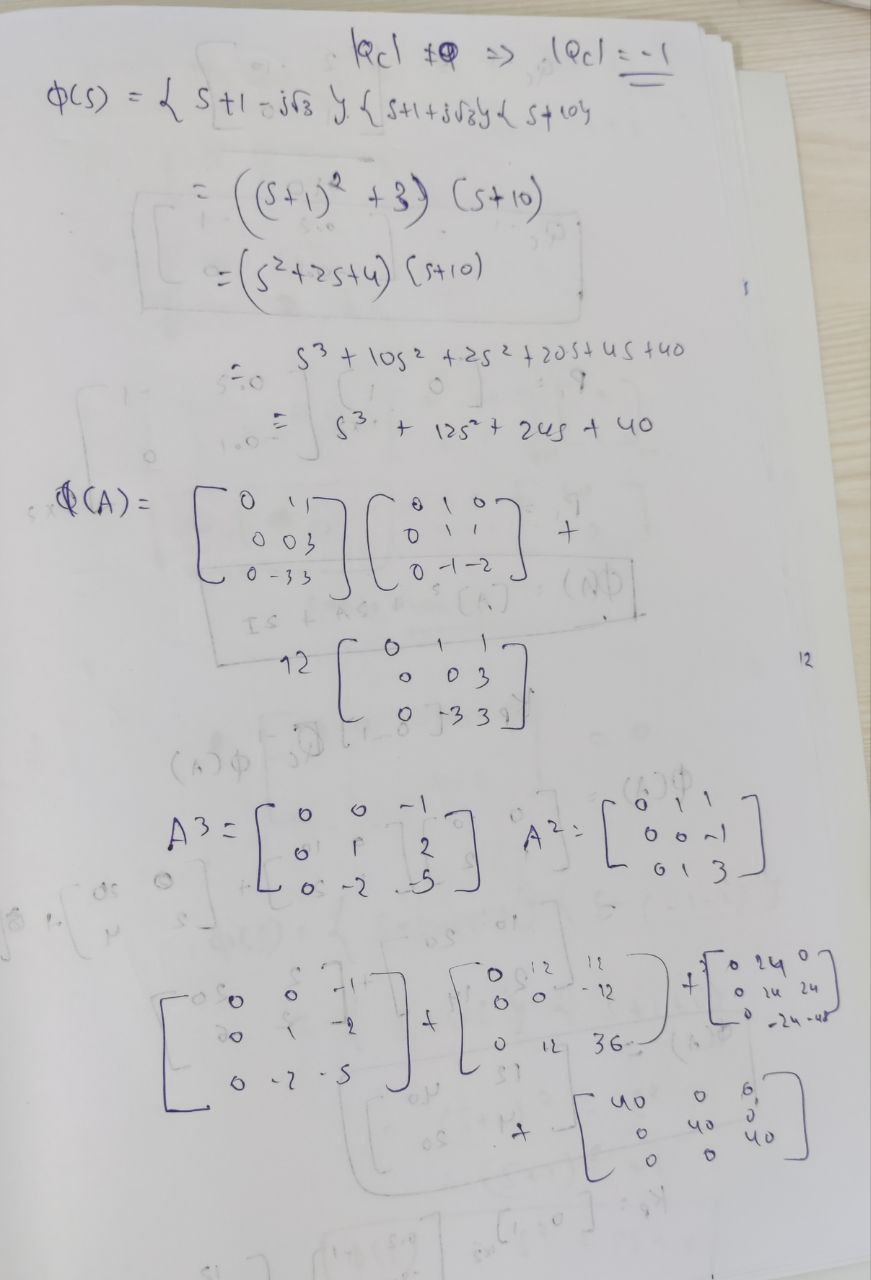 |Qc| ≠ 0 => |Qc| = -1
φ(s) = { s+1-j√3 } { s+1+j√3 } { s+10 }
= ((s+1)² + 3) (s+10)
= (s²+2s+4) (s+10)
= s³ + 10s² + 2s² + 20s + 4s + 40
= s³ + 12s² + 24s + 40
φ(A) = [ 0 1 1 ] [ 0 1 0 ] +
[ 0 0 3 ] [ 0 1 1 ]
[ 0 -3 3 ] [ 0 -1 -2 ]
12 [ 0 1 1 ]
[ 0 0 3 ]
[ 0 -3 3 ]
12
A³ = [ 0 0 -1 ] A² = [ 0 1 1 ]
[ 0 1 2 ] [ 0 0 -1 ]
[ 0 -2 -5 ] [ 0 1 3 ]
[ 0 0 -1 ] + [ 0 12 12 ] + [ 0 24 0 ]
[ 0 1 -2 ] [ 0 0 -12 ] [ 0 24 24 ]
[ 0 -2 -5 ] [ 0 12 36 ] [ 0 -24 -48 ]
+ [ 40 0 0 ]
[ 0 40 0 ]
[ 0 0 40 ]